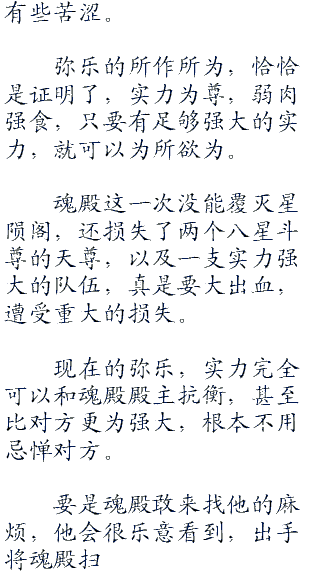 有些苦涩。
弥乐的所作所为，恰恰
是证明了，实力为尊，弱肉
强食，只要有足够强大的实
力，就可以为所欲为。
魂殿这一次没能覆灭星
陨阁，还损失了两个八星斗
尊的天尊，以及一支实力强
大的队伍，真是要大出血，
遭受重大的损失。
现在的弥乐，实力完全
可以和魂殿殿主抗衡，甚至
比对方更为强大，根本不用
忌惮对方。
要是魂殿敢来找他的麻
烦，他会很乐意看到，出手
将魂殿扫